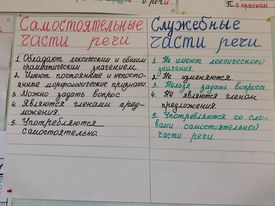 П. о красном
Самостоятельные
части речи
1. Обладают лексическим и общим
грамматическим значением.
2. Имеют постоянные и непосто-
янные морфологические признаки.
3. Можно задать вопрос
4. Являются членами пред-
ложения.
5. Употребляются
самостоятельно.
Служебные
части речи.
1. Не имеют лексического
значения.
2. Не изменяются.
3. Нельзя задать вопросы
4. Не являются членом
предложения.
5. Употребляются со сло-
вами самостоятельной
части речи.